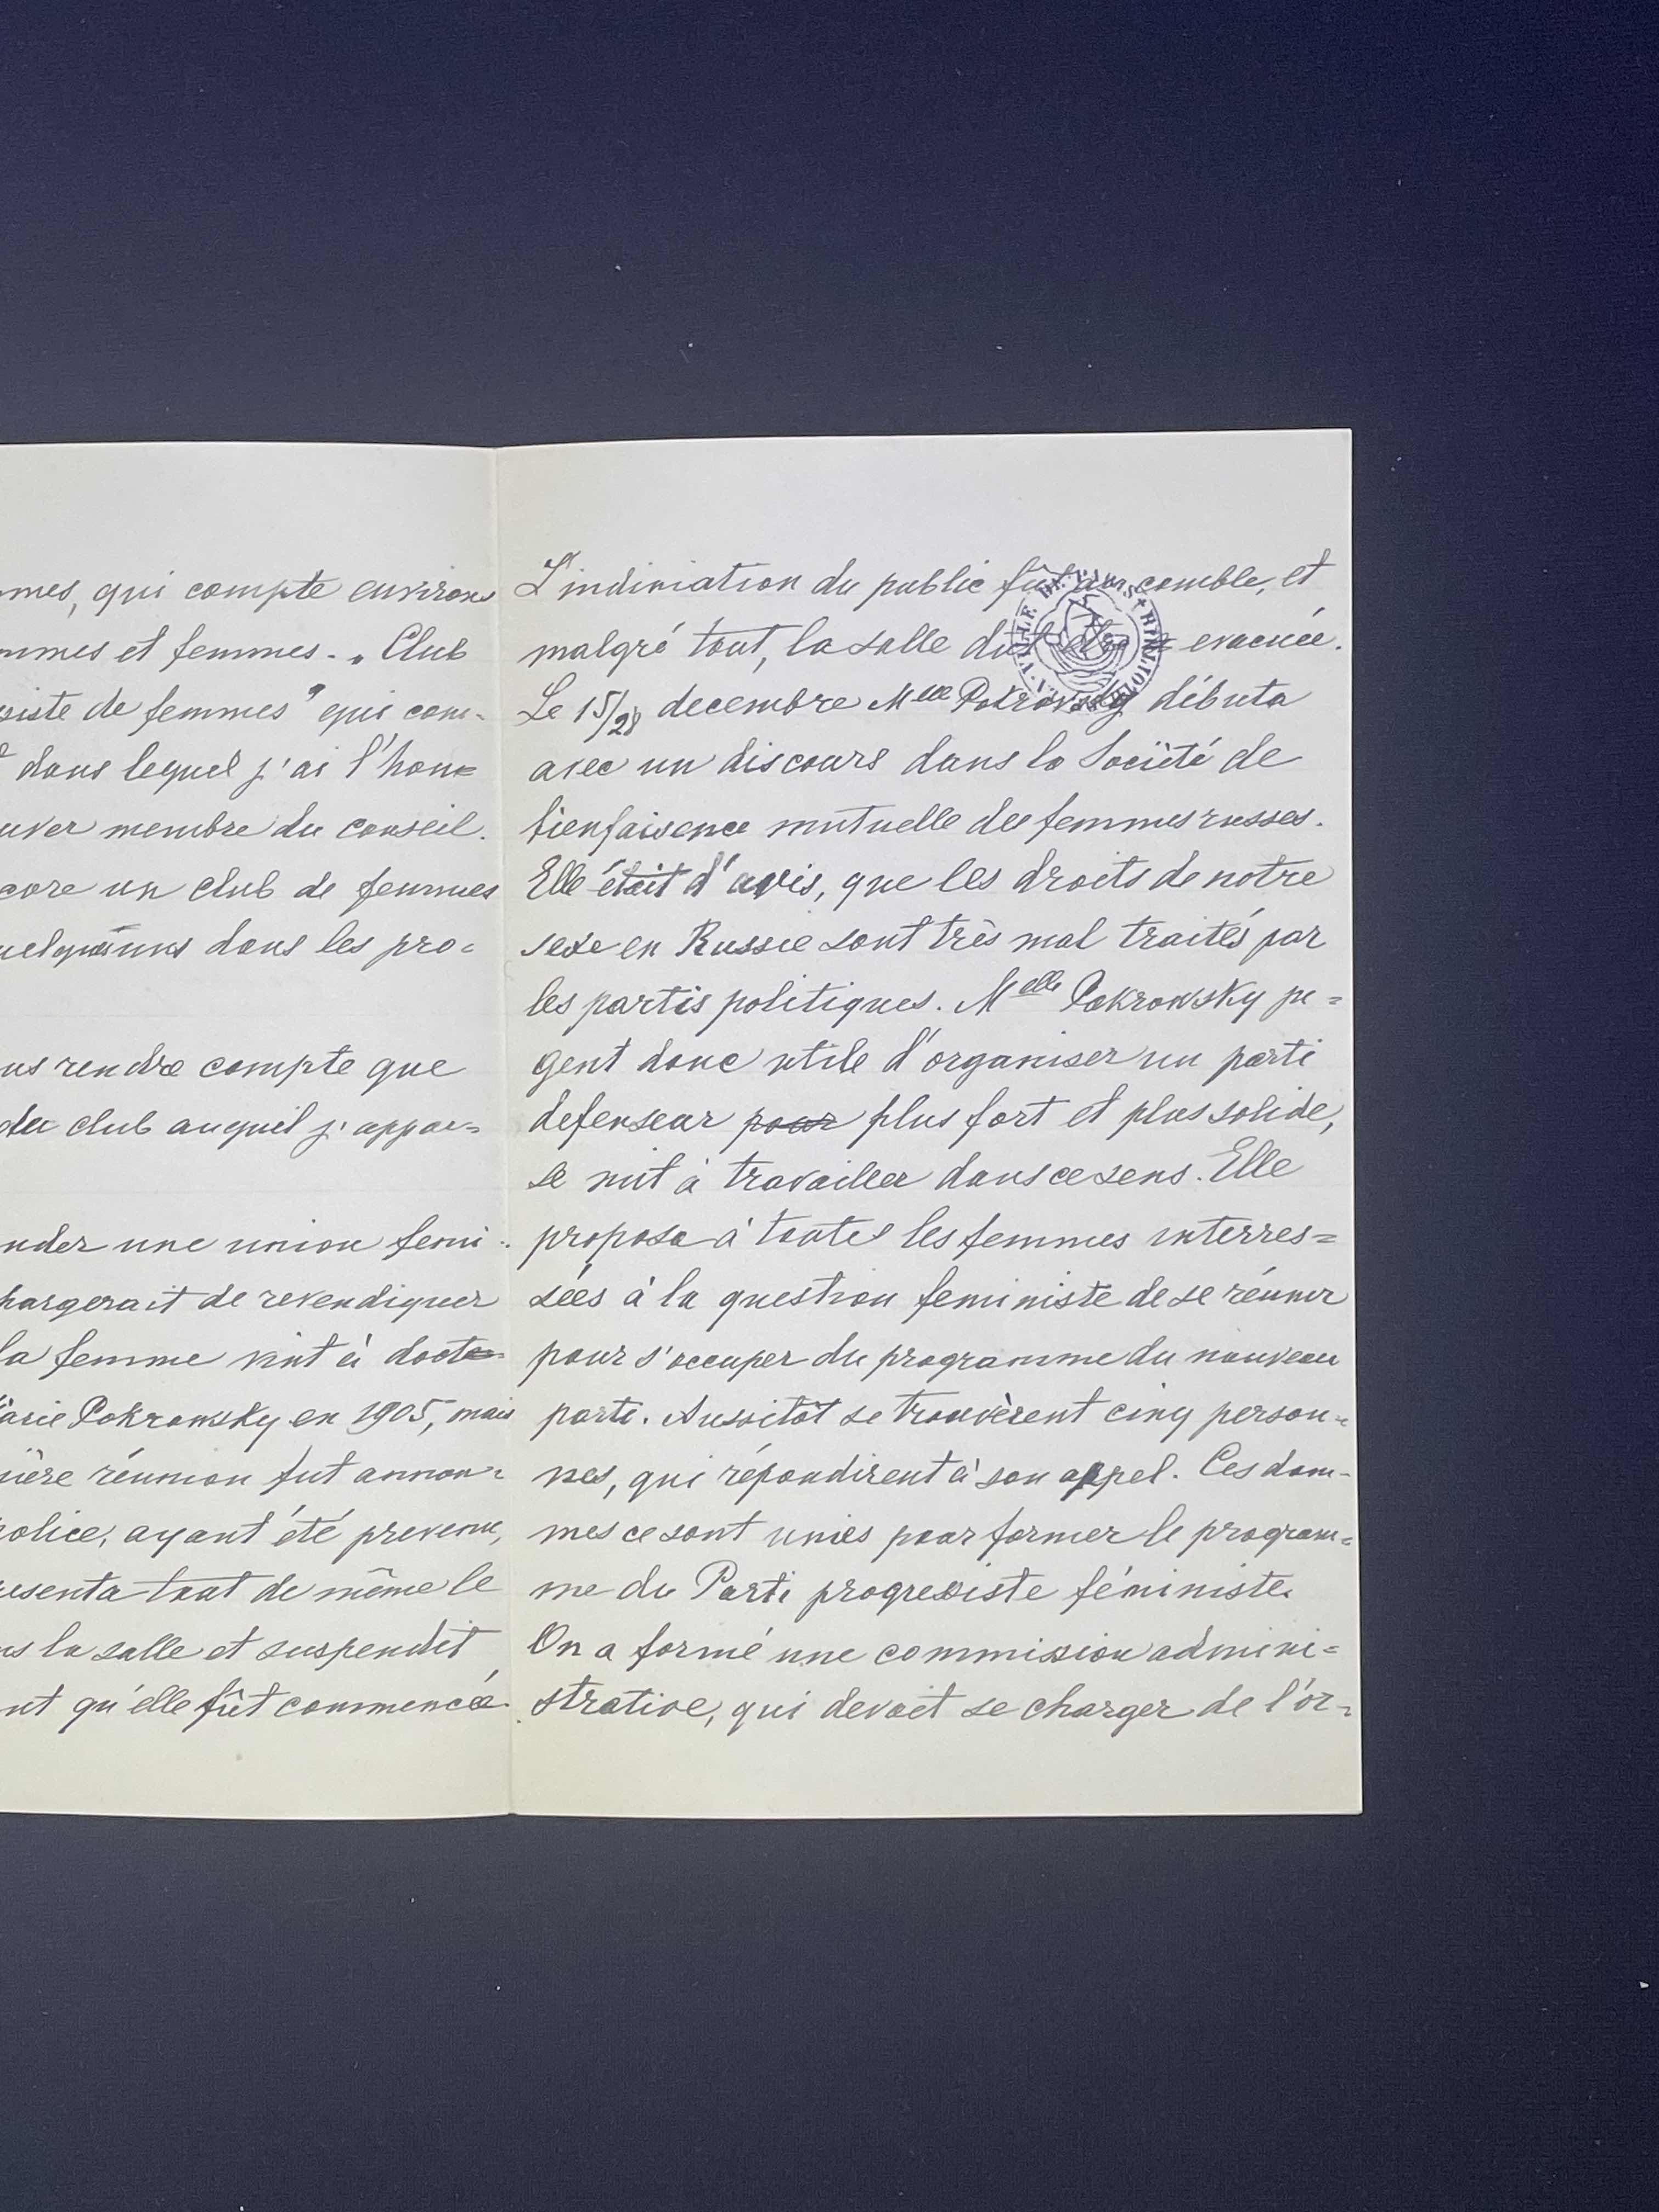 mes, qui compte environ
mmes et femmes. „Club
siste de femmes" qui com-
dans lequel j'ai l'hon=
uver membre du conseil.
core un club de femmes
uns dans les pro=
us rendre compte que
du club auquel j'appar=
nder une union femi-
hargerait de revendiquer
la femme vint à docto=
arie Pokrowsky en 1905, mais
ière réunion fut annon=
olice, ayant été prevenue,
esenta tout de même le
ns la salle et suspendit
nt qu'elle fût commencée.
L'indiniation du public fût au comble, et
malgré tout, la salle dut être evacuée.
Le 15/28 decembre Mlle Pokrowsky débuta
avec un discours dans la Société de
bienfaisence mutuelle des femmes russes.
Elle était d'avis, que les droits de notre
sexe en Russie sont très mal traités par
les partis politiques. Melle Pokrowsky pe=
gent donc utile d'organiser un parti
defenseur pour plus fort et plus solide,
se mit à travailler dans ce sens. Elle
proposa à toutes les femmes interres=
sées à la question feministe de se réunir
pour s'occuper du programme du nouveau
parti. Aussitôt se trouvèrent cinq person=
nes, qui répondirent à son appel. Ces dam-
mes ce sont unies pour former le program=
me du Parti progressiste féministe.
On a formé une commission admini=
strative, qui devait se charger de l'or=
VILLE DE PARIS